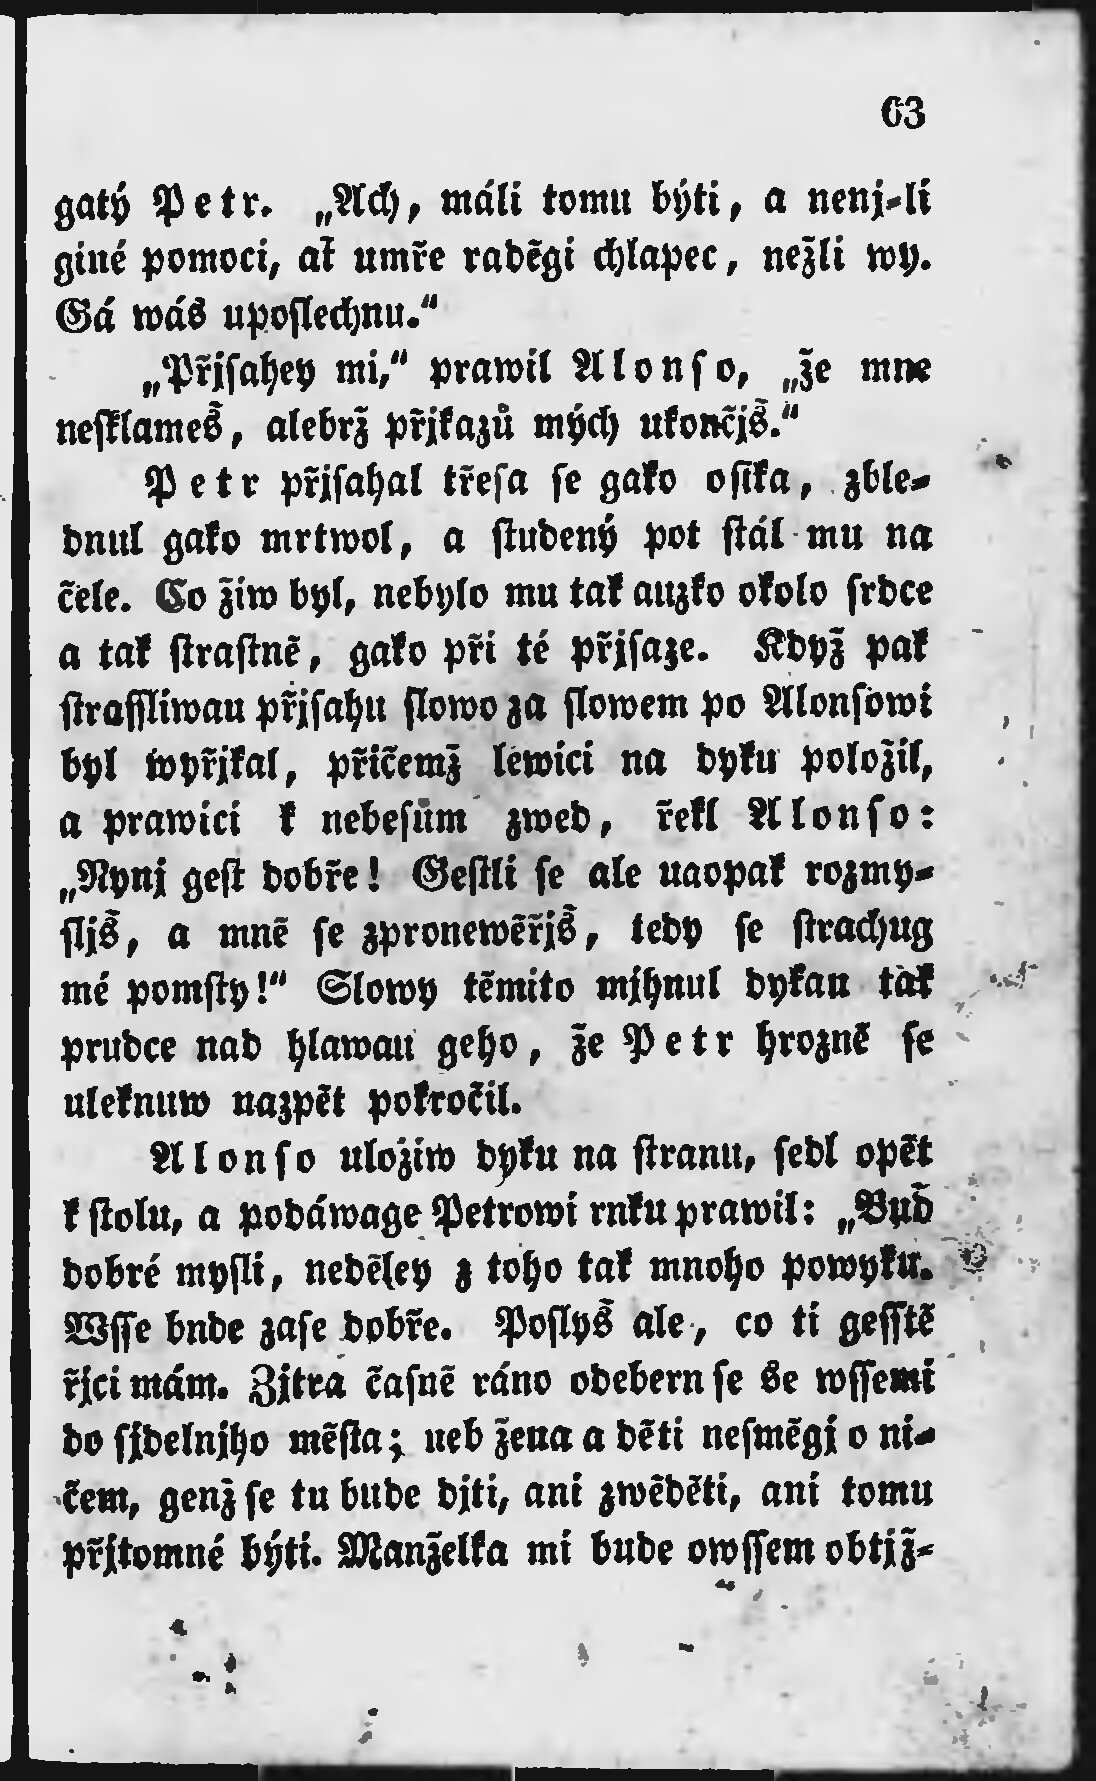 63
gatý Petr. „Ach, máli tomu býti, a nenj-li
giné pomoci, ať umře raděgi chlapec, nežli wy.
Gá wás uposlechnu.“
„Přjsahey mi,“ prawil Alonso, „že mne
nesklameš, alebrž přjkazů mých ukončjš.“
Petr přjsahal třesa se gako osika, zble-
dnul gako mrtwol, a studený pot stál mu na
čele. Co žiw byl, nebylo mu tak auzko okolo srdce
a tak strastně, gako při té přjsaze. Když pak
strassliwau přjsahu slowo za slowem po Alonsowi
byl wyřjkal, přičemž lewici na dyku položil,
a prawici k nebesům zwed, řekl Alonso:
„Nynj gest dobře! Gestli se ale uaopak rozmy-
sljš, a mně se zproněwěřjš, tedy se strachug
mé pomsty!“ Slowy těmito mjhnul dykau tak
prudce nad hlawau geho, že Petr hrozně se
uleknuw nazpět pokročil.
Alonso uložiw dyku na stranu, sedl opět
k stolu, a podáwage Petrowi rnku prawil: „Buď
dobré mysli, neděley z toho tak mnoho powyku.
Wsse bnde zase dobře. Poslyš ale, co ti gesstě
řjci mám. Zjtra časně ráno odebern se se wssemi
do sjdelnjho města; neb žena a děti nesměgj o ni-
čem, genž se tu bude djti, ani zwěděti, ani tomu
přjtomné býti. Manželka mi bude owssem obtjž-